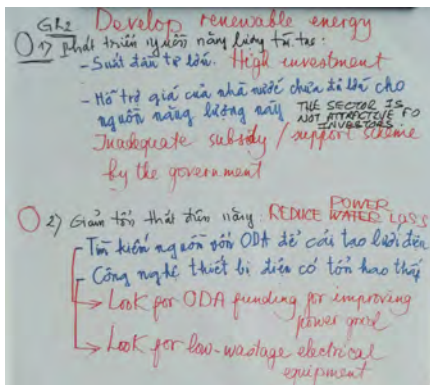 GR2 Develop renewable energy
1) Phát triển nguồn năng lượng tái tạo:
- Suất đầu tư lớn. High investment
- Hỗ trợ giá của nhà nước chưa đủ lớn cho
nguồn năng lượng này THE SECTOR IS
NOT ATTRACTIVE TO
INVESTORS.
Inadequate subsidy / support scheme
by the government
2) Giảm tổn thất điện năng: REDUCE WATER POWER LOSS
- Tìm kiếm nguồn vốn ODA để cải tạo lưới điện
- Công nghệ thiết bị điện có tổn hao thấp
→ Look for ODA funding for improving
power grid
→ Look for low-wastage electrical
equipment